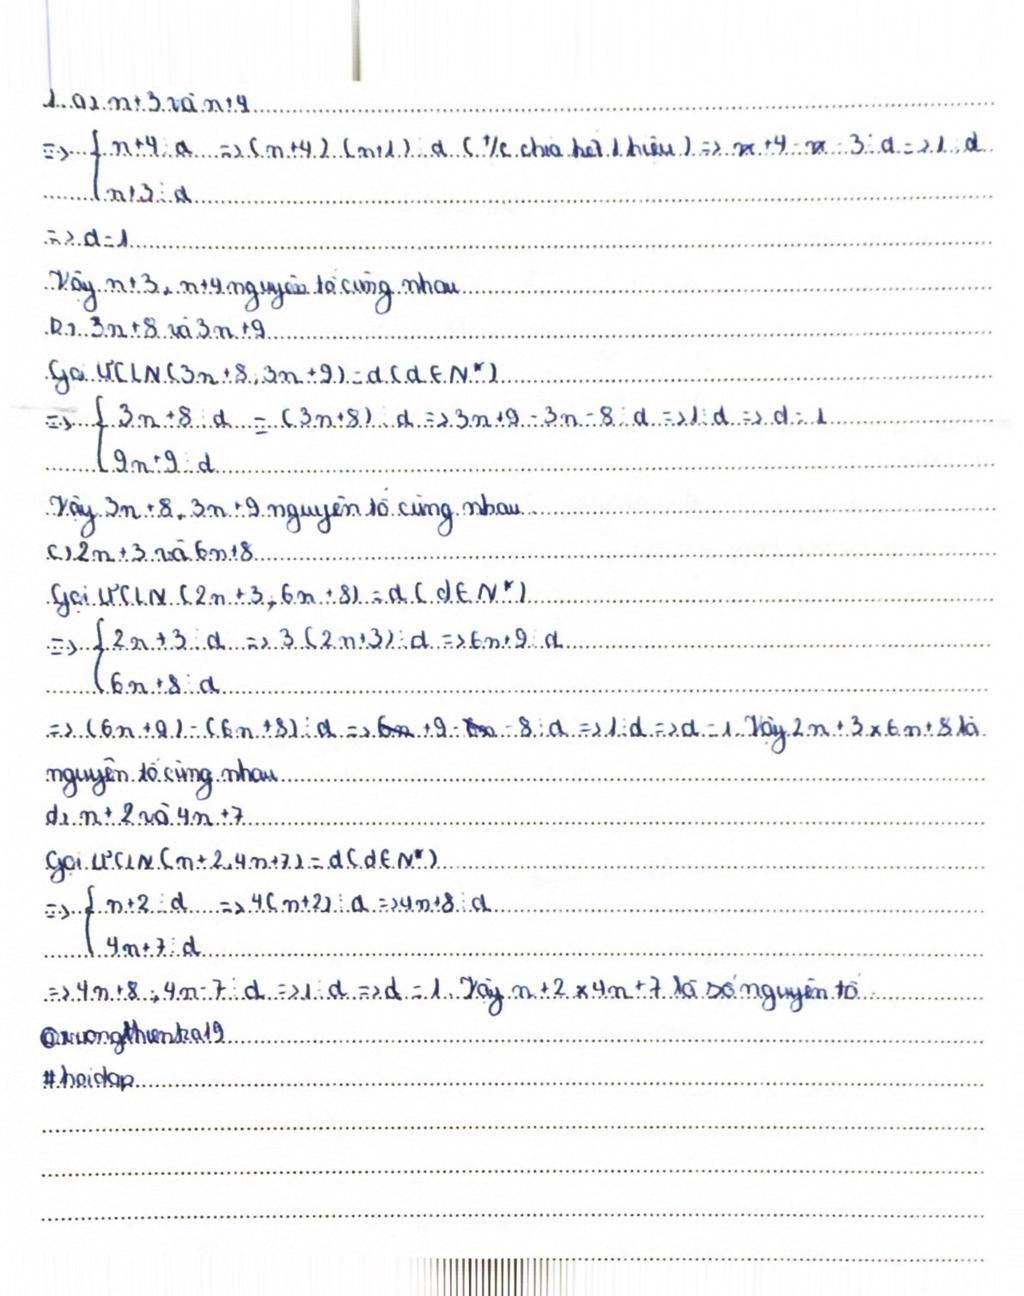 1. a) n+3 và n+4
=> { n+4 ⋮ d => (n+4) (n+1) ⋮ d ( T/c chia hết 1 hiệu ) => n+4-n-3 ⋮ d => 1 ⋮ d
n+3 ⋮ d
=> d=1
Vậy n+3, n+4 nguyên tố cùng nhau
b) 3n+8 và 3n+9
Gọi ƯCLN (3n+8, 3n+9) = d (d ∈ N*)
=> { 3n+8 ⋮ d = (3n+8) ⋮ d => 3n+9-3n-8 ⋮ d => 1 ⋮ d => d = 1
9n+9 ⋮ d
Vậy 3n+8, 3n+9 nguyên tố cùng nhau
c) 2n+3 và 6n+8
Gọi ƯCLN (2n+3, 6n+8) = d (d ∈ N*)
=> { 2n+3 ⋮ d => 3 (2n+3) ⋮ d => 6n+9 ⋮ d
6n+8 ⋮ d
=> (6n+9) - (6n+8) ⋮ d => 6n+9-6n-8 ⋮ d => 1 ⋮ d => d = 1. Vậy 2n+3 x 6n+8 là
nguyên tố cùng nhau
d) n+2 và 4n+7
Gọi ƯCLN (n+2, 4n+7) = d (d ∈ N*)
=> { n+2 ⋮ d => 4(n+2) ⋮ d => 4n+8 ⋮ d
4n+7 ⋮ d
=> 4n+8 ; 4n-7 ⋮ d => 1 ⋮ d => d = 1. Vậy n+2 x 4n+7 là số nguyên tố
#hoidap